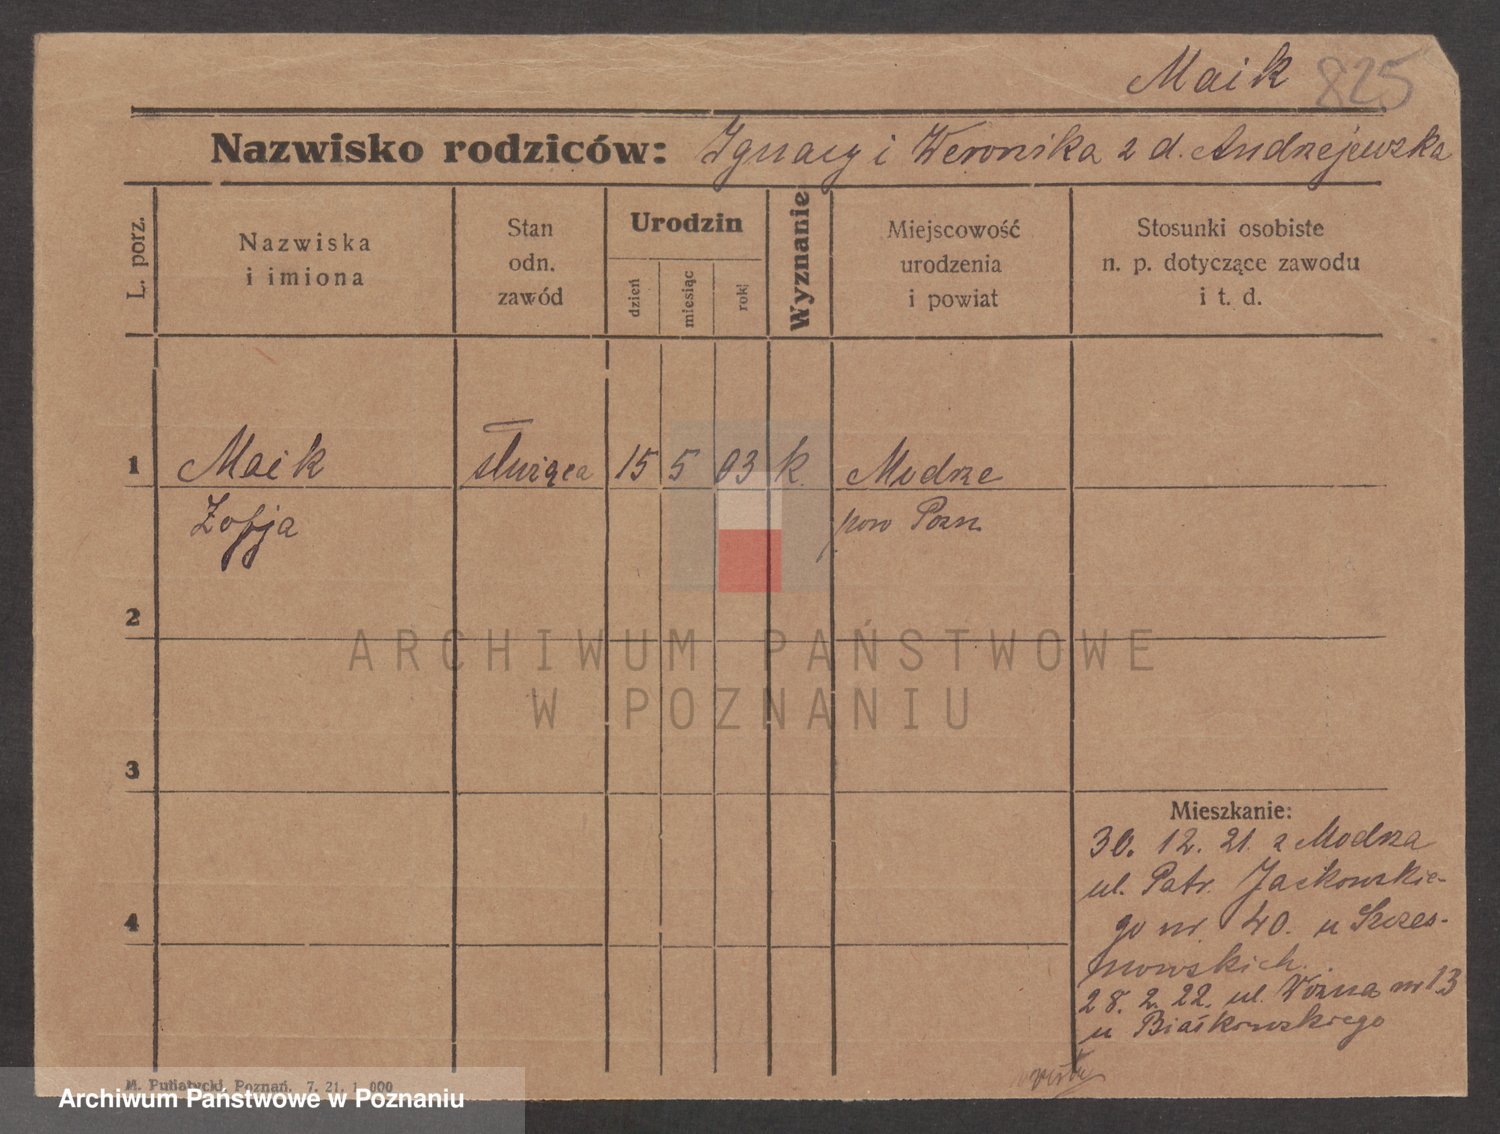 Maik 825
Nazwisko rodziców: Ignacy i Weronika z d. Andrzejewska
L. porz.
Nazwiska
i imiona
Stan
odn.
zawód
Urodzin
dzień
miesiąc
rok
Wyznanie
Miejscowość
urodzenia
i powiat
Stosunki osobiste
n. p. dotyczące zawodu
i t. d.
1 Maik służąca 15 5 03 k. Modrze
Zofja pow Pozn.
2
3
4
Mieszkanie:
30. 12. 21. z Modrza
ul. Patr. Jackowskie-
go nr. 40. u Szczes-
nowskich.
28. 2. 22. ul. Woźna nr 13
u Białkowskiego
M. Putiatycki, Poznań. 7. 21. 1 000
ARCHIWUM PAŃSTWOWE
W POZNANIU
Archiwum Państwowe w Poznaniu